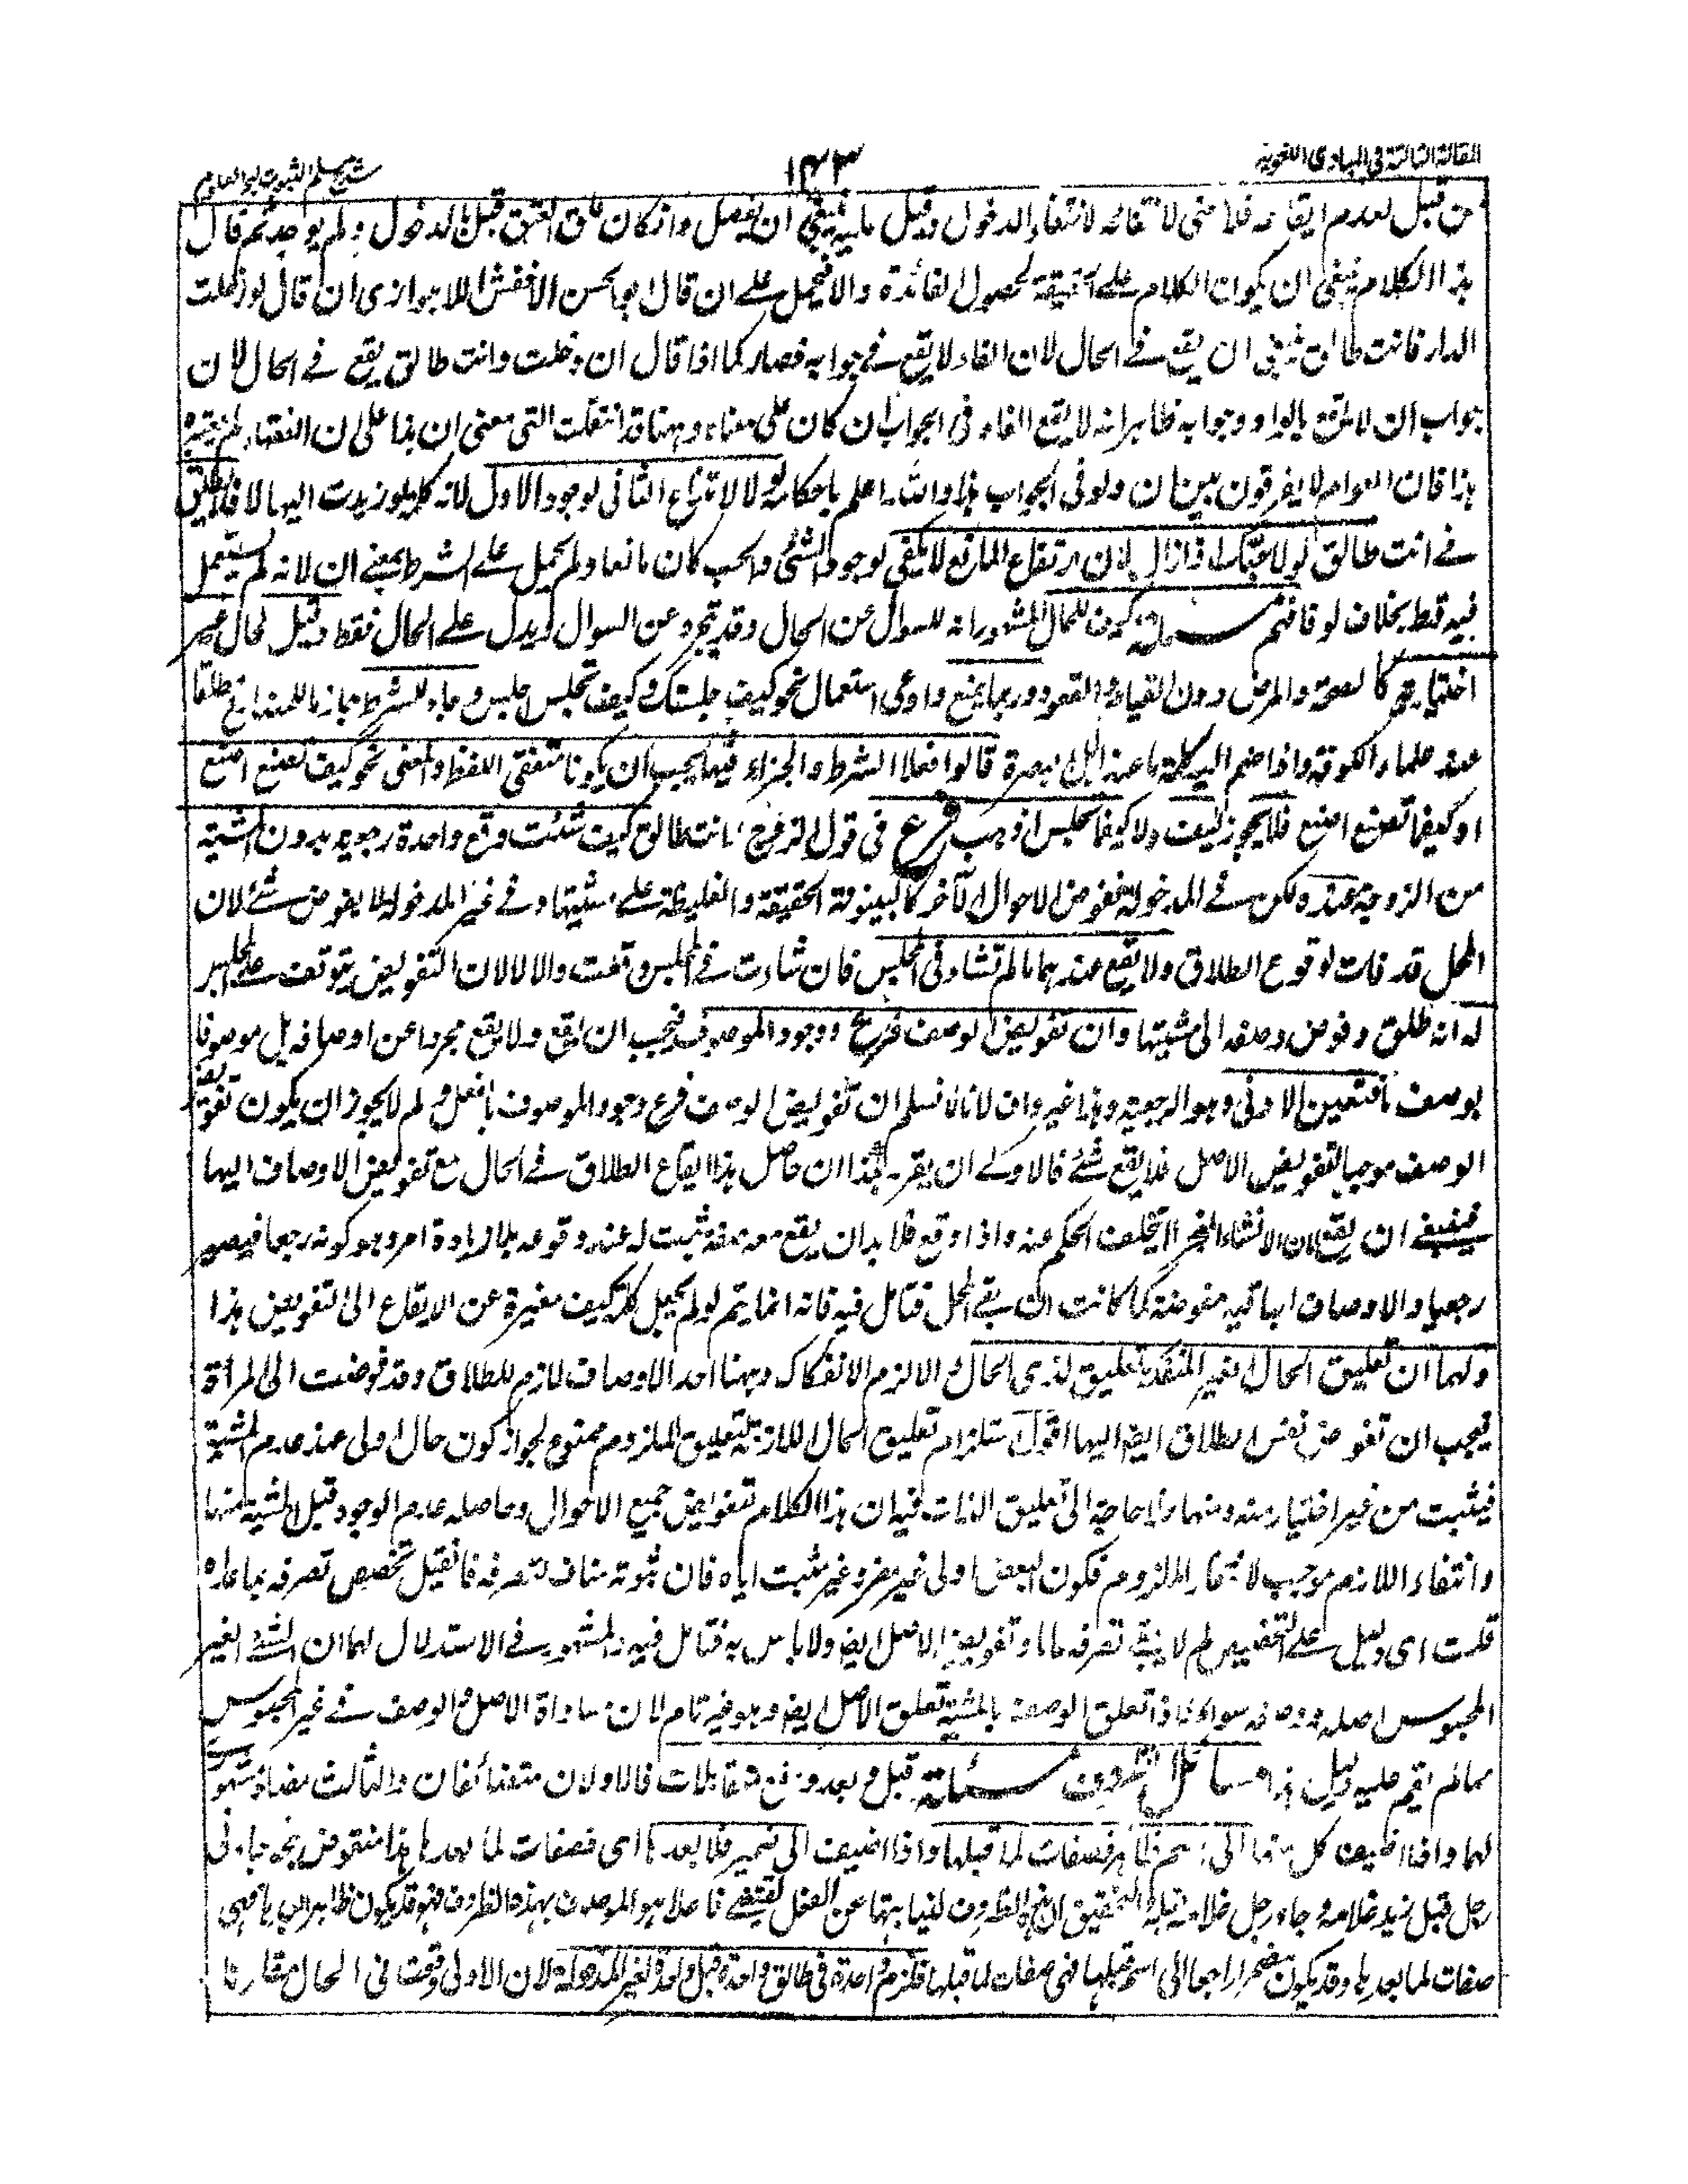 المقالة الثالثة في المبادى اللغوية
١٤٣
شرح مسلم الثبوت لبحر العلوم
من قبل لعدم ايقاعه فلا معنى لانتفائه لانتفاء الدخول وقيل عليه ينبغي ان يفصل وان كان علق العتق قبل بالدخول ولم يوجد ثم قال
هذا الكلام ينبغي ان يكون الكلام على الحقيقة لحصول الفائدة والا فيحمل على ان قال ابو الحسن الاخفش اللاهوازى ان قال لو دخلت
الدار فانت طالق ينبغي ان يقع في الحال لان الفاء لا يقع في جوابه فصار كما اذا قال ان دخلت وانت طالق يقع في الحال لان
جواب ان لا يقع بالواو وجوابه ظاهر انه لا يقع الفاء في الجواب ان كان على معناه وههنا قد انتقلت التى معنى ان هذا على ان الفقهاء لم يعتبروا
هذا فان العوام لا يفرقون بين ان ولو في الجواب هذا والله اعلم باحكامه لولا لامتناع الثانى لوجود الاول لانه كلمة لو زيدت اليها لا فلا تطلق
في انت طالق لولا حبك اذا زال لان ارتفاع المانع لا يكفي لوجود الشئ والحب كان مانعا ولم يحمل على الشرط بمعنى ان لانه لم يستعمل
فيه قط بخلاف لو فافهم مسئلة كيف للحال المشهور انه للسوال عن الحال وقد تجرد عن السوال ويدل على الحال فقط وقيل لحال غير
اختيارية كالصحة والمرض دون القيام والقعود وربما يمنع وادعى استعمال نحو كيف جلستك وكيف تجلس اجلس وجاء للشرط مجازا للمناسبة مطلقا
عند علماء الكوفة واذا ضم اليه كلمة ما عند اهل البصرة قالوا فعلا الشرط والجزاء فيها يجب ان يكونا متفقى اللفظ والمعنى نحو كيف تصنع اصنع
او كيفما تصنع اصنع فلا يجوز كيف ولا كيفما تجلس اذهب فرع في قول الزوج انت طالق كيف شئت وقع واحدة رجعية بدون المشية
من الزوجة عنده ولكن في المدخولة تفوض الاحوال الآخر كالبينونة الخفيفة والغليظة على مشيتها وفي غير المدخولة لا يفوض شئ لان
المحل قد فات لوقوع الطلاق ولا يقع عندهما ما لم تشاء في المجلس فان شاءت في المجلس وقعت والا لا لان التفويض يتوقف على المجلس
له انه طلق وفوض وصفه الى مشيتها وان تفويض الوصف فرع وجود الموصوف فيجب ان يقع ولا يقع مجردا عن اوصافه بل موصوفا
بوصف ما فتعين الادنى وهو الرجعية وهذا غير واف لانا لا نسلم ان تفويض الوصف فرع وجود الموصوف بالفعل ولم لا يجوز ان يكون تفويض
الوصف موجبا لتفويض الاصل فلا يقع شئ فالاولى ان يقرر هكذا ان حاصل هذا ايقاع الطلاق في الحال مع تفويض الاوصاف اليها
فينبغي ان يقع لان الانشاء المنجز لا يتخلف الحكم عنه واذا وقع فلا بد ان يقع معه صفة ثبت له عند وقوعه بلا زيادة امر وهو كونه رجعيا فيصير
رجعيا والاوصاف الباقية مفوضة كما كانت ان بقى المحل فتامل فيه فانه انما يتم لو لم يجعل كلمة كيف مغيرة عن الايقاع الى التفويض هذا
ولهما ان تعليق الحال الغير المنفك تعليق لذى الحال والا لزم الانفكاك وههنا احد الاوصاف لازم للطلاق وقد فوضت الى المرأة
فيجب ان تفوض نفس الطلاق ايضا اليها اقول استلزام تعليق الحال اللازمة لتعليق الملزوم ممنوع لجواز كون حال اولى عند عدم المشية
فيثبت من غير اختيار منه ومنها ولا حاجة الى تعليق الذات فيه ان هذا الكلام تفويض جميع الاحوال وحاصله عدم الوجود قبل المشية منها
وانتفاء اللازم موجب لانتفاء الملزوم فكون البعض اولى غير مضر وغير مثبت اياه فان ثبوته مناف لتصرفه فان قيل تخصص تصرفه بما عداه
قلت اى دليل على التخصيص لم لا يثبت تصرفه عاما وتفويض الاصل ايضا ولا باس به فتامل فيه والمشهور في الاستدلال لهما ان الشئ الغير
المحبوس اصله ووصفه سواء فاذا تعلق الوصف بالمشية تعلق الاصل ايضا وهو غير تام لان مساواة الاصل والوصف في غير المحبوس
مما لم يقم عليه دليل هذا مسائل الظروف مسئلة قبل وبعد ومع متقابلات فالاولان متضائفان والثالث مضاد مشهورى
لهما واذا اضيف كل منها الى اسم ظاهر فصفات لما قبلها واذا اضيفت الى ضمير فلما بعدها اى فصفات لما بعدها هذا منقوض بنحو جاءنى
رجل قبل زيد غلامه وجاء رجل غلامه قبله والتحقيق ان هذه الظروف لنيابتها عن الفعل يقتضى فاعلا هو الموصوف بهذه الظروف فهو قد يكون ظاهرا بعدها فهى
صفات لما بعدها وقد يكون مضمرا راجعا الى اسم قبلها فهى صفات لما قبلها فتلزم واحدة في طالق واحدة قبل واحدة لغير المدخولة لان الاولى وقعت في الحال مقارنا